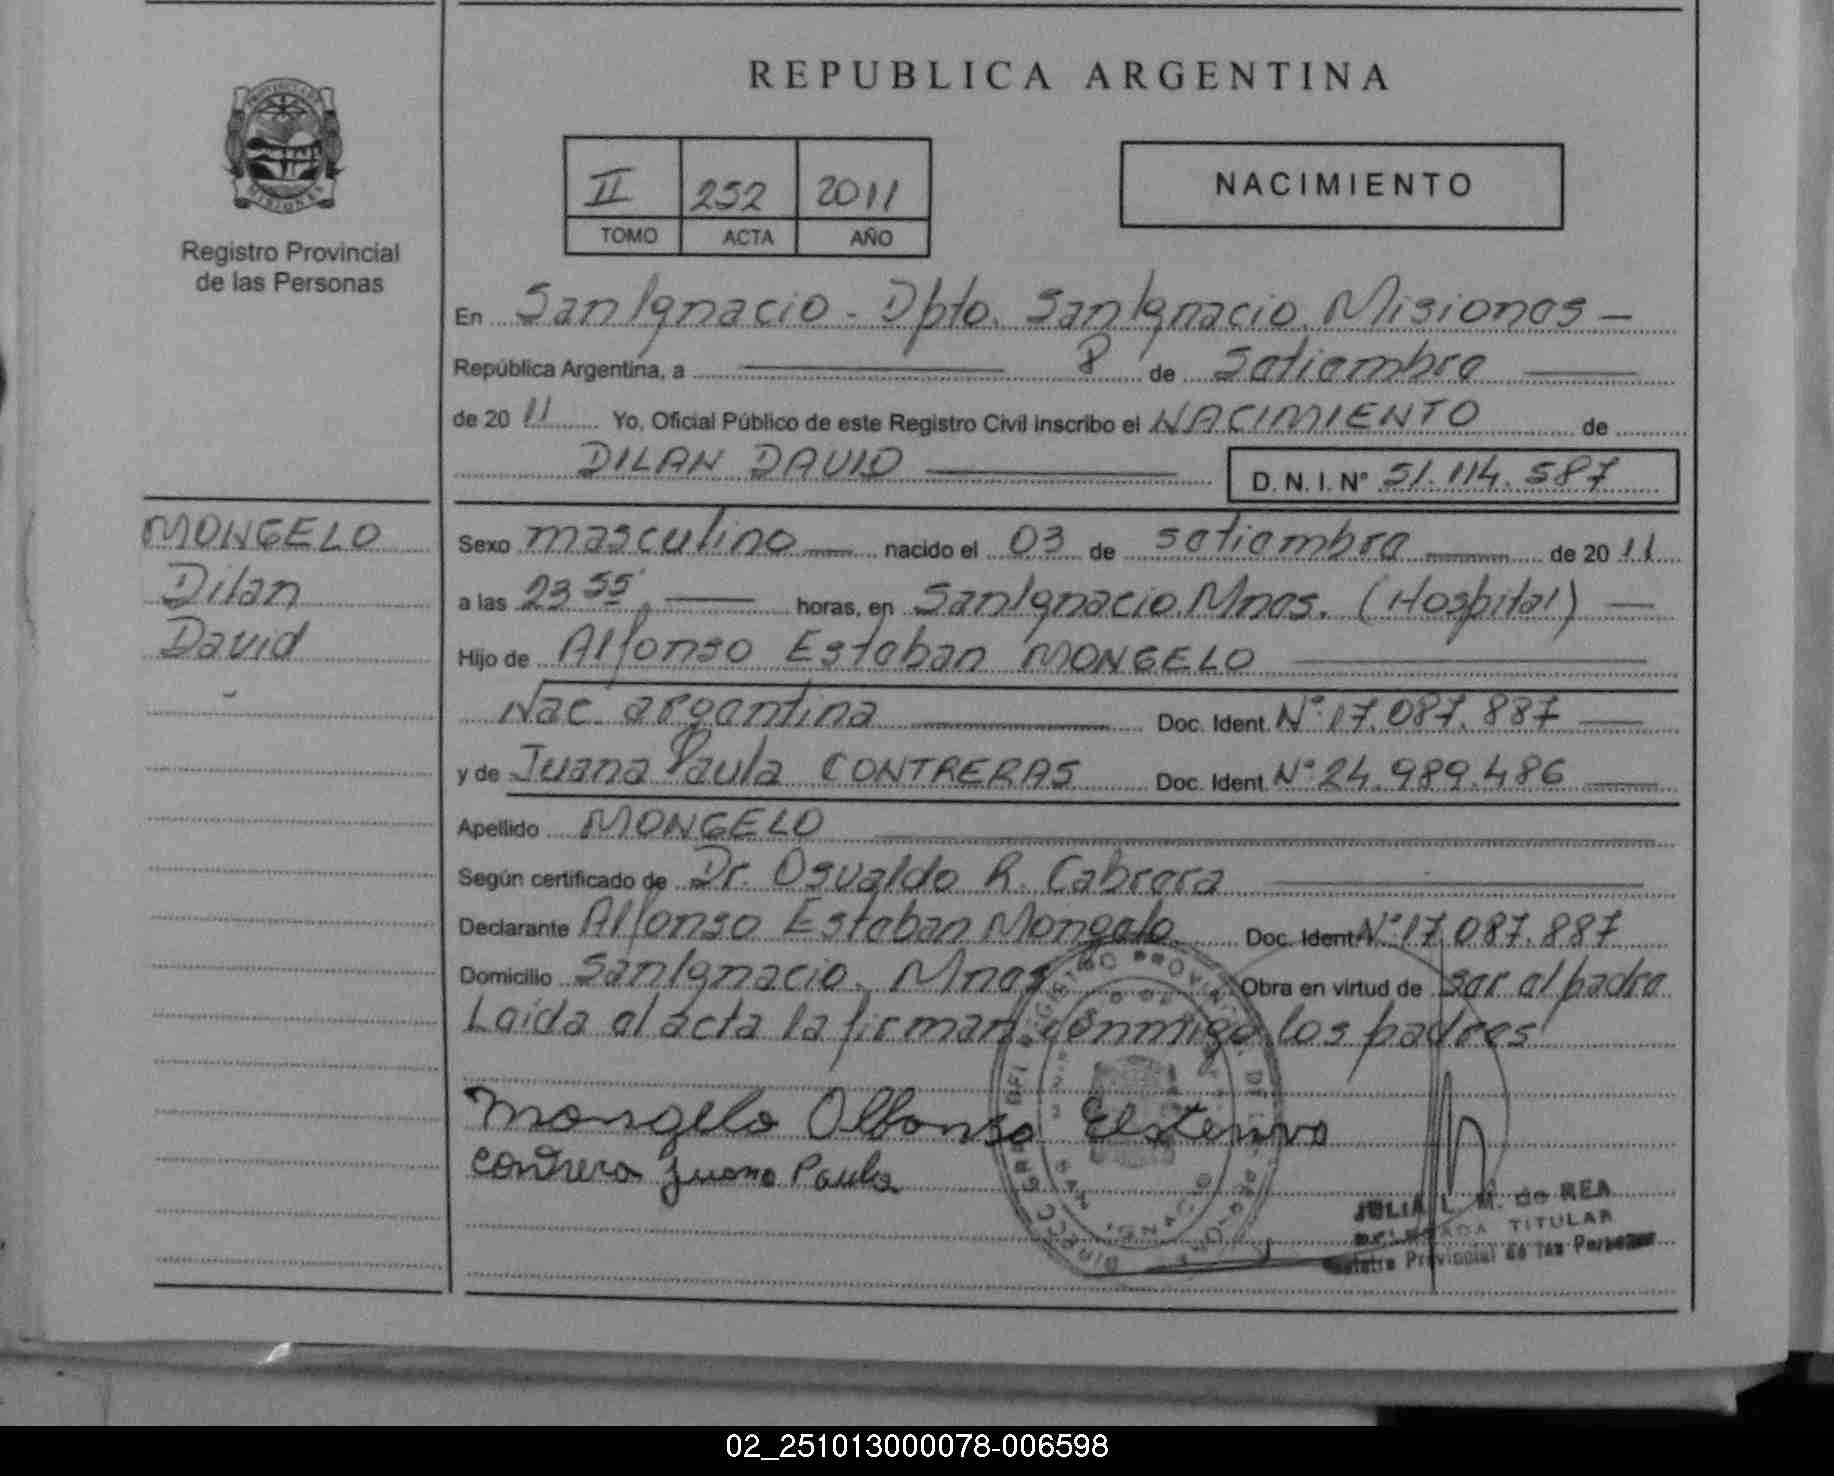 REPUBLICA ARGENTINA
II 252 2011
TOMO ACTA AÑO
NACIMIENTO
PROVINCIA DE
MISIONES
Registro Provincial
de las Personas
En San Ignacio - Dpto. San Ignacio. Misiones -
República Argentina, a 8 de Setiembre
de 20 11 Yo, Oficial Público de este Registro Civil inscribo el NACIMIENTO de
DILAN DAVID D. N. I. N° 51.114.587
MONGELO
Dilan
David
Sexo masculino nacido el 03 de setiembre de 20 11
a las 23 55' horas, en San Ignacio Mnes. (Hospital)
Hijo de Alfonso Esteban MONGELO
Nac. argentina Doc. Ident. N° 17.087.887
y de Juana Paula CONTRERAS Doc. Ident. N° 24.989.486
Apellido MONGELO
Según certificado de Dr. Osvaldo R. Cabrera
Declarante Alfonso Esteban Mongelo Doc. Ident. N° 17.087.887
Domicilio San Ignacio. Mnes Obra en virtud de ser el padre
Leída el acta la firman conmigo los padres
Mongelo Alfonso
Contrera Juana Paula
JULIA L. M. de REA
DELEGADA TITULAR
Registro Provincial de las Personas
02_251013000078-006598